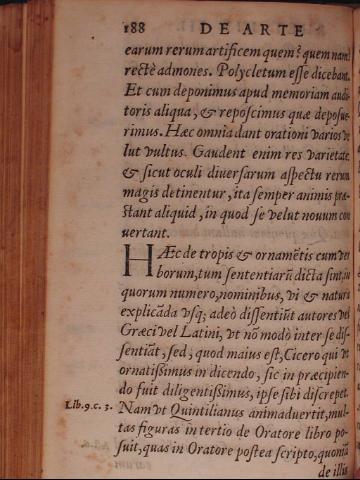 188 DE ARTE
earum rerum artificem quem? quem nam?
rectè admones. Polycletum esse dicebant.
Et cum deponimus apud memoriam audi
toris aliqua, & reposcimus quæ deposue
rimus. Hæc omnia dant orationi varios ve
lut vultus. Gaudent enim res varietate,
& sicut oculi diuersarum aspectu rerum
magis detinentur, ita semper animis præ
stant aliquid, in quod se velut nouum con
uertant.
HÆc de tropis & ornamētis cum ver
borum, tum sententiarū dicta sint, in
quorum numero, nominibus, vi & natura
explicāda vsq; adeò dissentiūt autores vel
Græci vel Latini, vt nō modò inter se dis-
sentiāt, sed, quod maius est, Cicero qui vt
ornatissimus in dicendo, sic in præcipien-
do fuit diligentissimus, ipse sibi discrepet.
Lib.9.c.3. Nam vt Quintilianus animaduertit, mul-
tas figuras in tertio de Oratore libro po-
suit, quas in Oratore postea scripto, quoniā
de illis